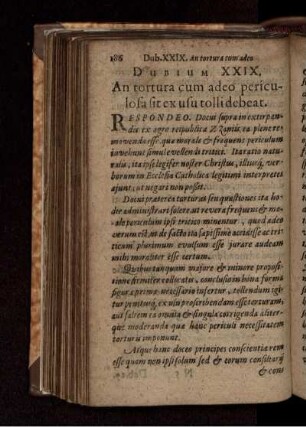 186 Dub. XXIX. An tortura cum adeo
DUBIUM XXIX,
An tortura cum adeo pericu-
losa sit ex usu tolli debeat.
RESPONDEO. Docui supra in extirpan-
dis ex agro reipublicæ Zizaniis ea plane re-
movenda esse quæ morale & frequens periculum
involvunt simul evellendi tritici. Ita ratio natu-
ralis, ita ipse legifer noster Christus, illiusq; ver-
borum in Ecclesia Catholica legitimi interpretes
ajunt, ut negari non possit.
Docui præterea torturas seu quæstiones ita ho-
die administrari solere ut revera frequens & mo-
rale periculum ipsi tritico minentur, quod adeo
verum est, ut de facto ita sæpissime accidisse ac tri-
ticum plurimum evulsum esse jurare audeam
mihi morabiter esse certum.
Quibus tanquam majore & minore propositi-
one firmiter collocatis, conclusio in bona formæ
figura primæ necessario infertur, tollendum igi-
tur penitus, ex usu proscribendam esse torturam,
aut saltem ea omnia & singula corrigenda aliter-
que moderanda quæ hanc periculi necessitatem
torturis imponunt.
Atque hanc doceo principes conscientia rem
esse quam non ipsi solum sed & eorum consiliarij
& cons